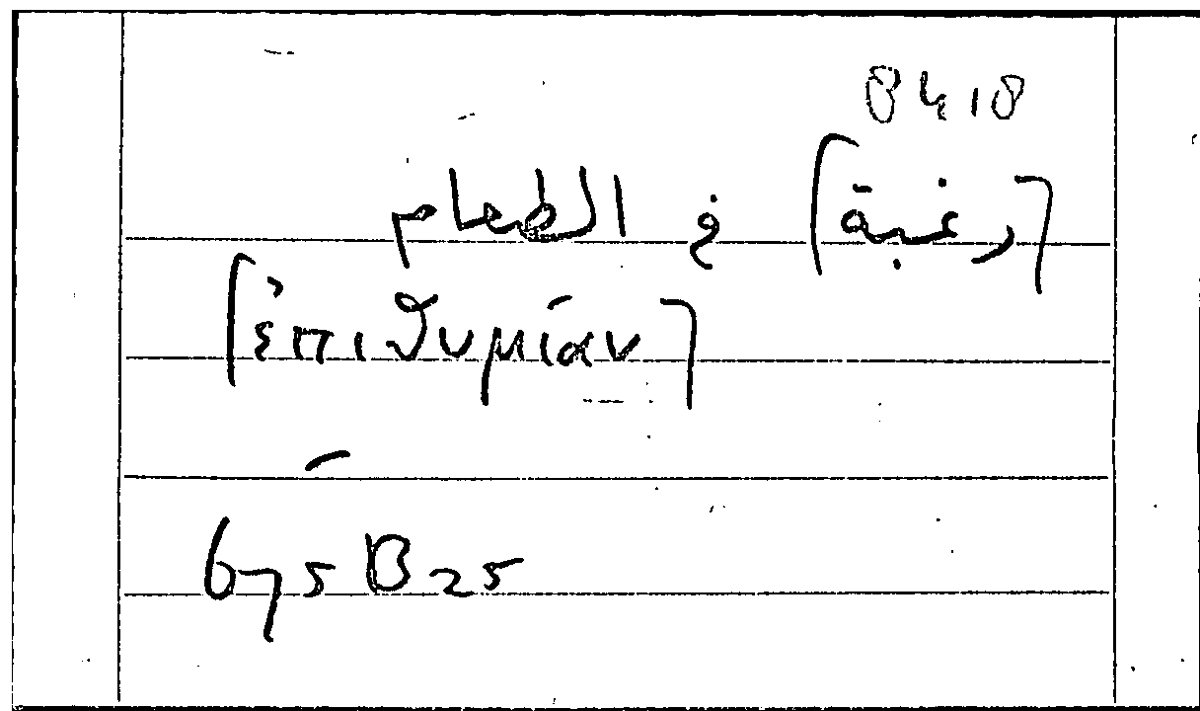 8418
[رغبة] في الطعام
[ἐπιθυμίαν]
675 B 25